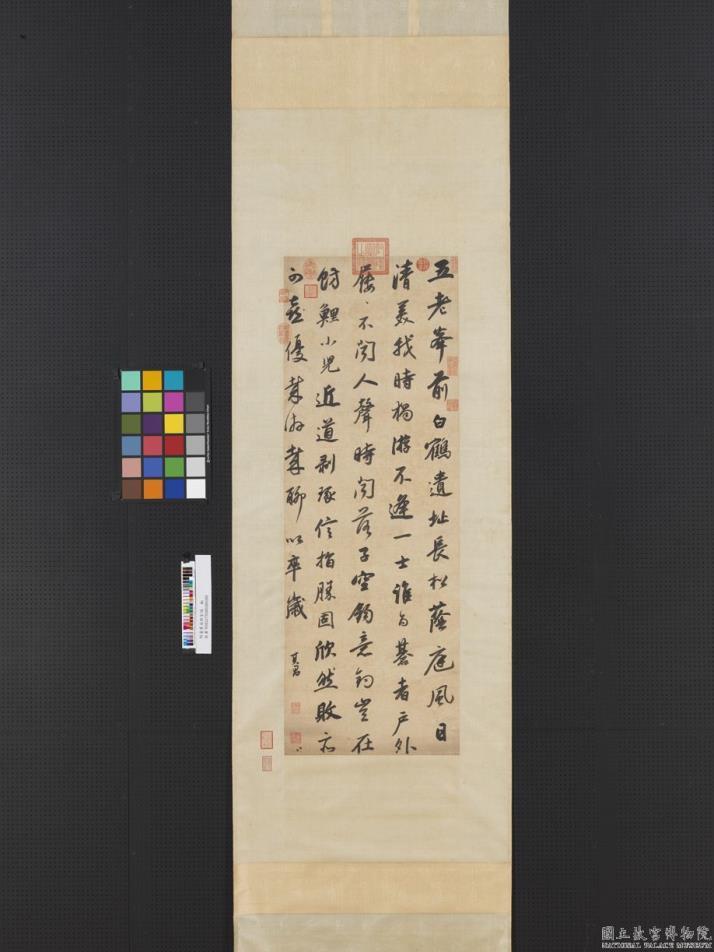 五老峯前白鶴遺址長松蔭庭風日
清美我時獨游不逢一士誰与棊者戶外
屨二不聞人聲時聞落子空鉤意釣豈在
魴鯉小兒近道剥琢信指勝固欣然敗亦
可喜優哉游哉聊以卒歲
其昌
國立故宮博物院
NATIONAL PALACE MUSEUM